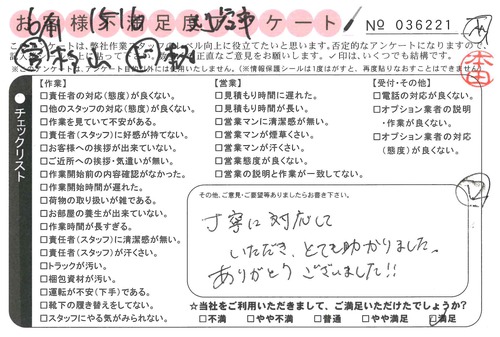 お客様不満足度アンケート
№ 036221
このアンケートは、弊社作業スタッフのレベル向上に役立てたいと思います。否定的なアンケートになりますので、
正直なご意見をお願いします。✓印は、いくつでも結構です。
チェックリスト
【作業】
□責任者の対応(態度)が良くない。
□他のスタッフの対応(態度)が良くない。
□作業を見ていて不安がある。
□責任者(スタッフ)に好感が持てない。
□お客様への挨拶が出来ていない。
□ご近所への挨拶・気遣いが無い。
□作業開始前の内容確認がなかった。
□作業開始時間が遅れた。
□荷物の取り扱いが雑である。
□お部屋の養生が出来ていない。
□作業時間が長すぎる。
□責任者(スタッフ)に清潔感が無い。
□責任者(スタッフ)が汗くさい。
□トラックが汚い。
□梱包資材が汚い。
□運転が不安(下手)である。
□靴下の履き替えをしてない。
□スタッフにやる気がみられない。
【営業】
□見積もり時間に遅れた。
□見積もり時間が長い。
□営業マンに清潔感が無い。
□営業マンが煙草くさい。
□営業マンが汗くさい。
□営業態度が良くない。
□営業の説明と作業が一致してない。
【受付・その他】
□電話の対応が良くない。
□オプション業者の説明
・作業が良くない。
□オプション業者の対応
(態度)が良くない。
本田
その他、ご意見・ご要望等ありましたらお書き下さい。
丁寧に対応して
いただき、とても助かりました。
ありがとうございました!!
☆当社をご利用いただきまして、ご満足いただけたでしょうか?
□不満 □やや不満 □普通 □やや満足 ☑満足